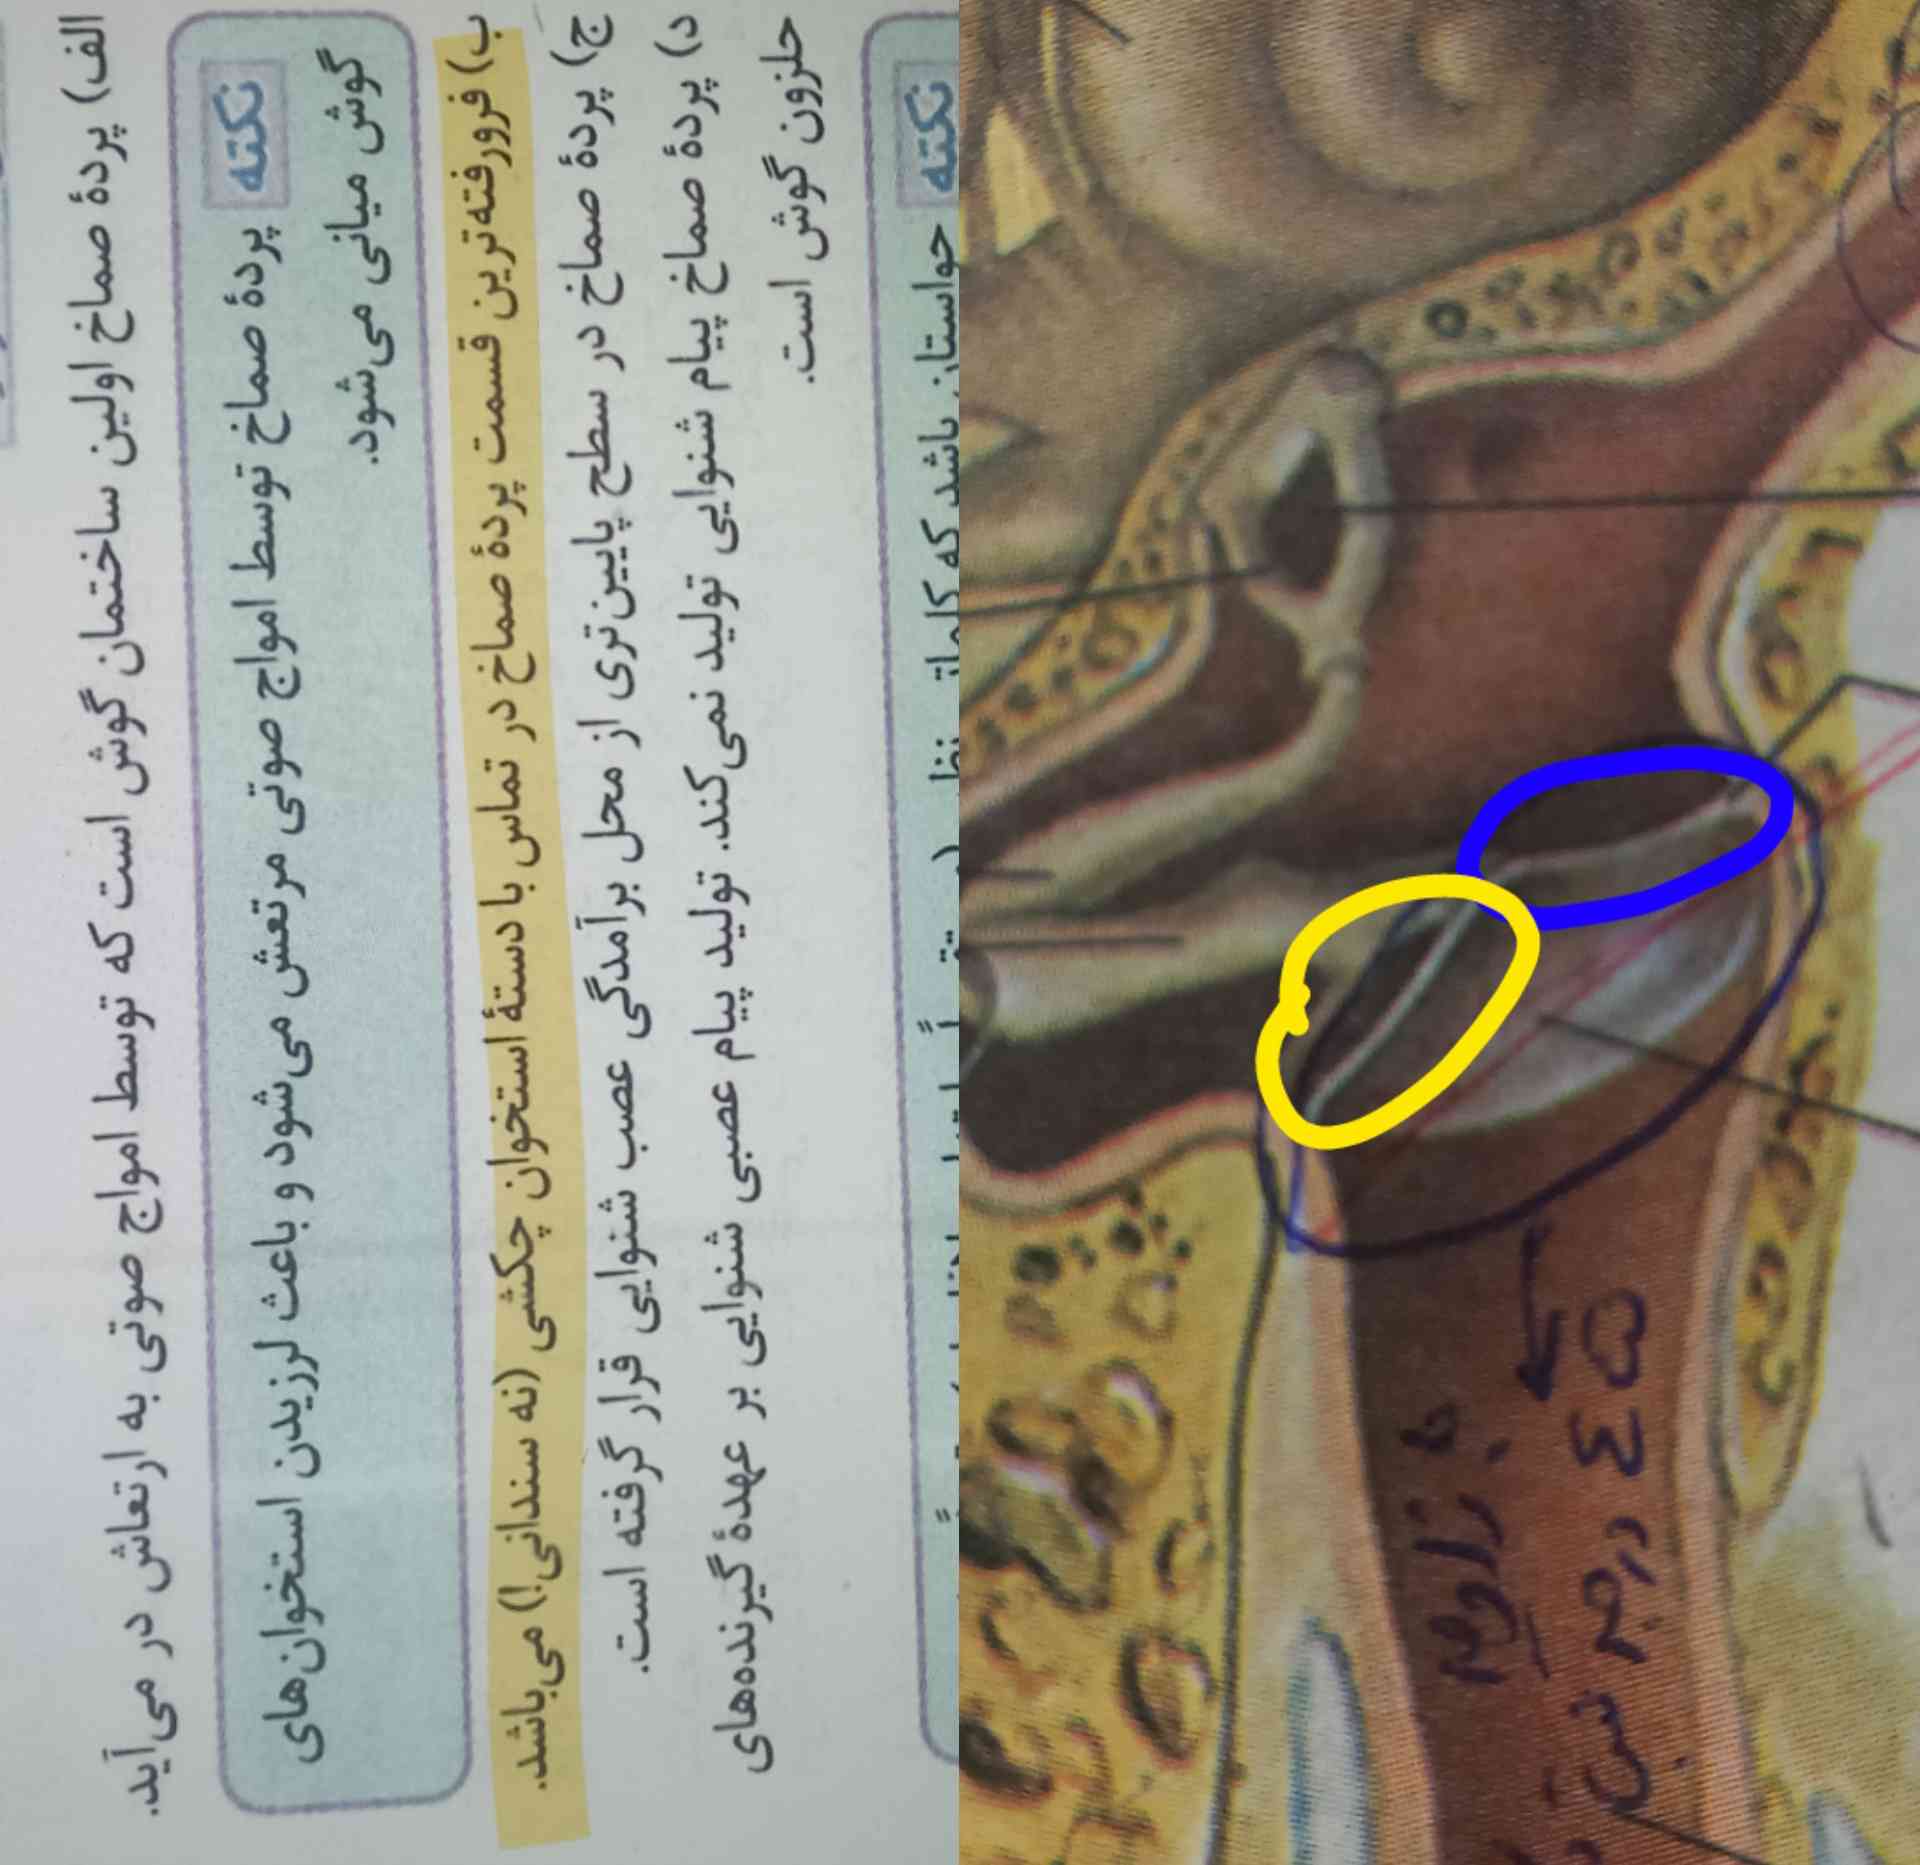 الف) پردهٔ صماخ اولین ساختمان گوش است که توسط امواج صوتی به ارتعاش در می‌آید.
نکته پردهٔ صماخ توسط امواج صوتی مرتعش می‌شود و باعث لرزیدن استخوان‌های
گوش میانی می‌شود.
ب) فرورفته‌ترین قسمت پردهٔ صماخ در تماس با دستهٔ استخوان چکشی (نه سندانی!) می‌باشد.
ج) پردهٔ صماخ در سطح پایین‌تری از محل برآمدگی عصب شنوایی قرار گرفته است.
د) پردهٔ صماخ پیام شنوایی تولید نمی‌کند. تولید پیام عصبی شنوایی بر عهدهٔ گیرنده‌های
حلزون گوش است.
نکته حواستان باشد که کلمات
زاویه
۴۵ درجه